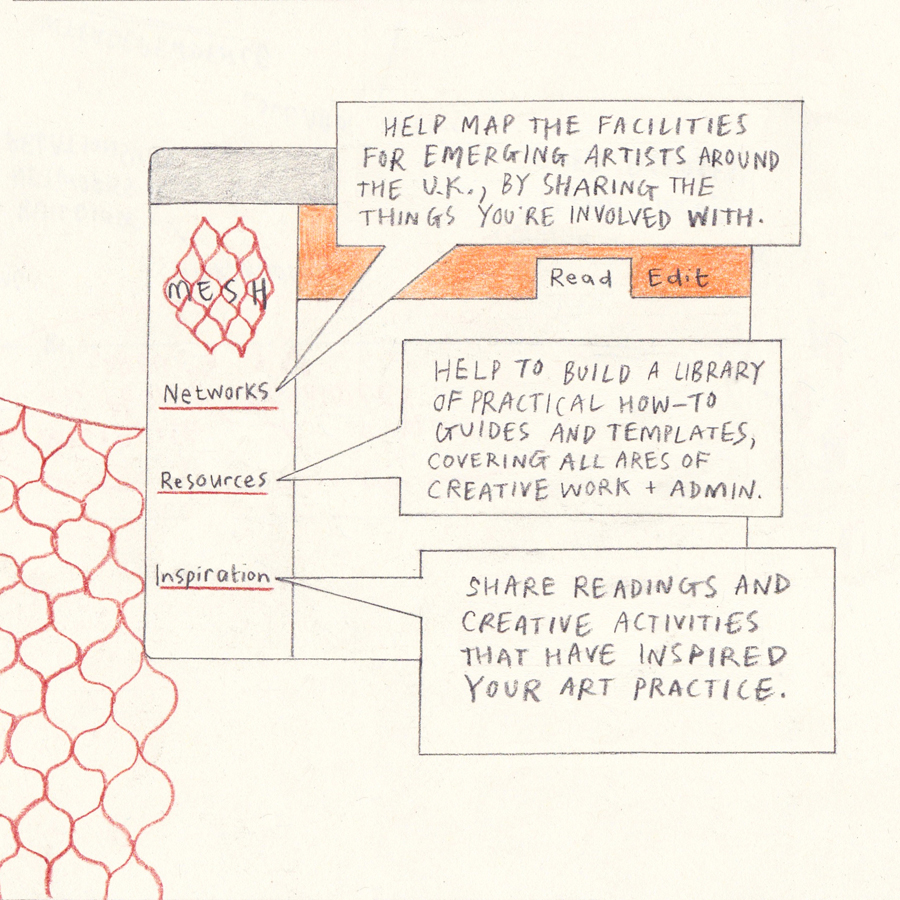 HELP MAP THE FACILITIES
FOR EMERGING ARTISTS AROUND
THE U.K., BY SHARING THE
THINGS YOU'RE INVOLVED WITH.
MESH
Read
Edit
Networks
HELP TO BUILD A LIBRARY
OF PRACTICAL HOW-TO
GUIDES AND TEMPLATES,
COVERING ALL ARES OF
CREATIVE WORK + ADMIN.
Resources
Inspiration
SHARE READINGS AND
CREATIVE ACTIVITIES
THAT HAVE INSPIRED
YOUR ART PRACTICE.